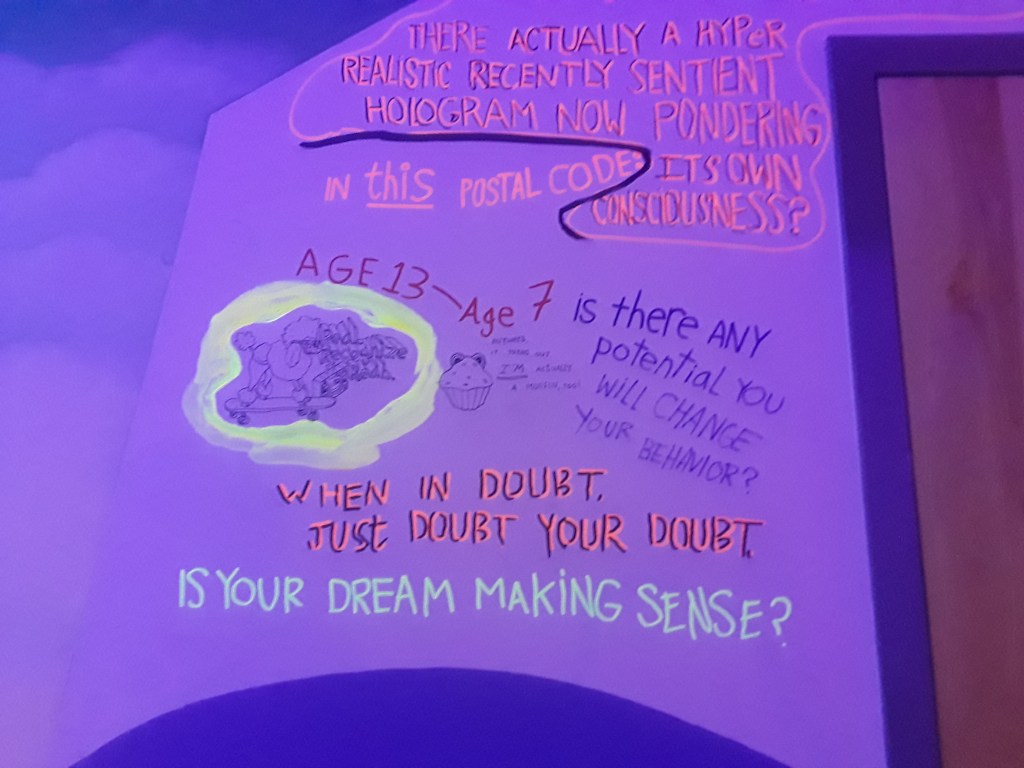 THERE ACTUALLY A HYPER
REALISTIC RECENTLY SENTIENT
HOLOGRAM NOW PONDERING
ITS OWN
CONSCIOUSNESS?
IN this POSTAL CODE:
AGE 13
Age 7
is there ANY
potential YOU
WILL CHANGE
YOUR BEHAVIOR?
Recognize
I'M ACTUALLY
WHEN IN DOUBT,
JUSt DOUBT YOUR DOUBT.
IS YOUR DREAM MAKING SENSE?